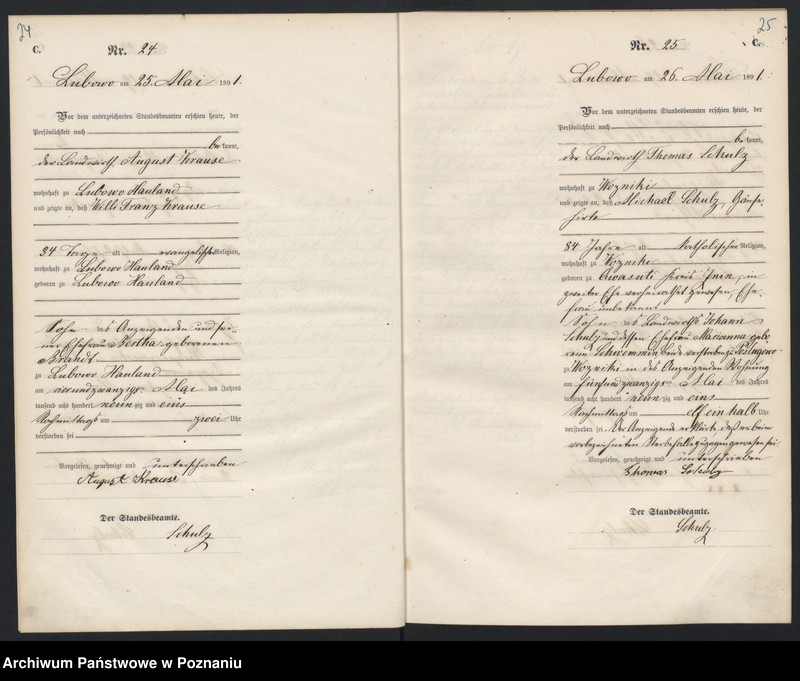 24
C.
Nr. 24
Lubowo am 25. Mai 1891.
Vor dem unterzeichneten Standesbeamten erschien heute, der
Persönlichkeit nach
bekannt,
der Landwirth August Krause
wohnhaft zu Lubowo Hauland
und zeigte an, daß Willi Franz Krause
34 Tage alt evangelischer Religion,
wohnhaft zu Lubowo Hauland
geboren zu Lubowo Hauland
Sohn des Anzeigenden und sei-
ner Ehefrau Bertha geborenen
Brandt
zu Lubowo Hauland
am vierundzwanzigsten Mai des Jahres
tausend acht hundert neunzig und eins
Nachmittags um zwei Uhr
verstorben sei
Vorgelesen, genehmigt und unterschrieben
August Krause
Der Standesbeamte.
Schulz
25
C.
Nr. 25
Lubowo am 26. Mai 1891.
Vor dem unterzeichneten Standesbeamten erschien heute, der
Persönlichkeit nach
bekannt,
der Landwirth Thomas Schulz
wohnhaft zu Wozniki
und zeigte an, daß Michael Schulz, Gänse-
hirte
84 Jahre alt katholischer Religion,
wohnhaft zu Wozniki
geboren zu Kreis Znin, in
zweiter Ehe verheirathet gewesen, Ehe-
frau unbekannt
Sohn des Landwirths Johann
Schulz und dessen Ehefrau Marianna gebo
rene Schwemmin beide verstorben zu
zu Wozniki in des Anzeigenden Wohnung
am fünfundzwanzigsten Mai des Jahres
tausend acht hundert neunzig und eins
Nachmittags um elf ein halb Uhr
verstorben sei. Der Anzeigende erklärte daß er beim
vorbezeichneten Sterbefalle zugegen gewesen sei
Vorgelesen, genehmigt und unterschrieben
Thomas Schulz
Der Standesbeamte.
Schulz
Archiwum Państwowe w Poznaniu